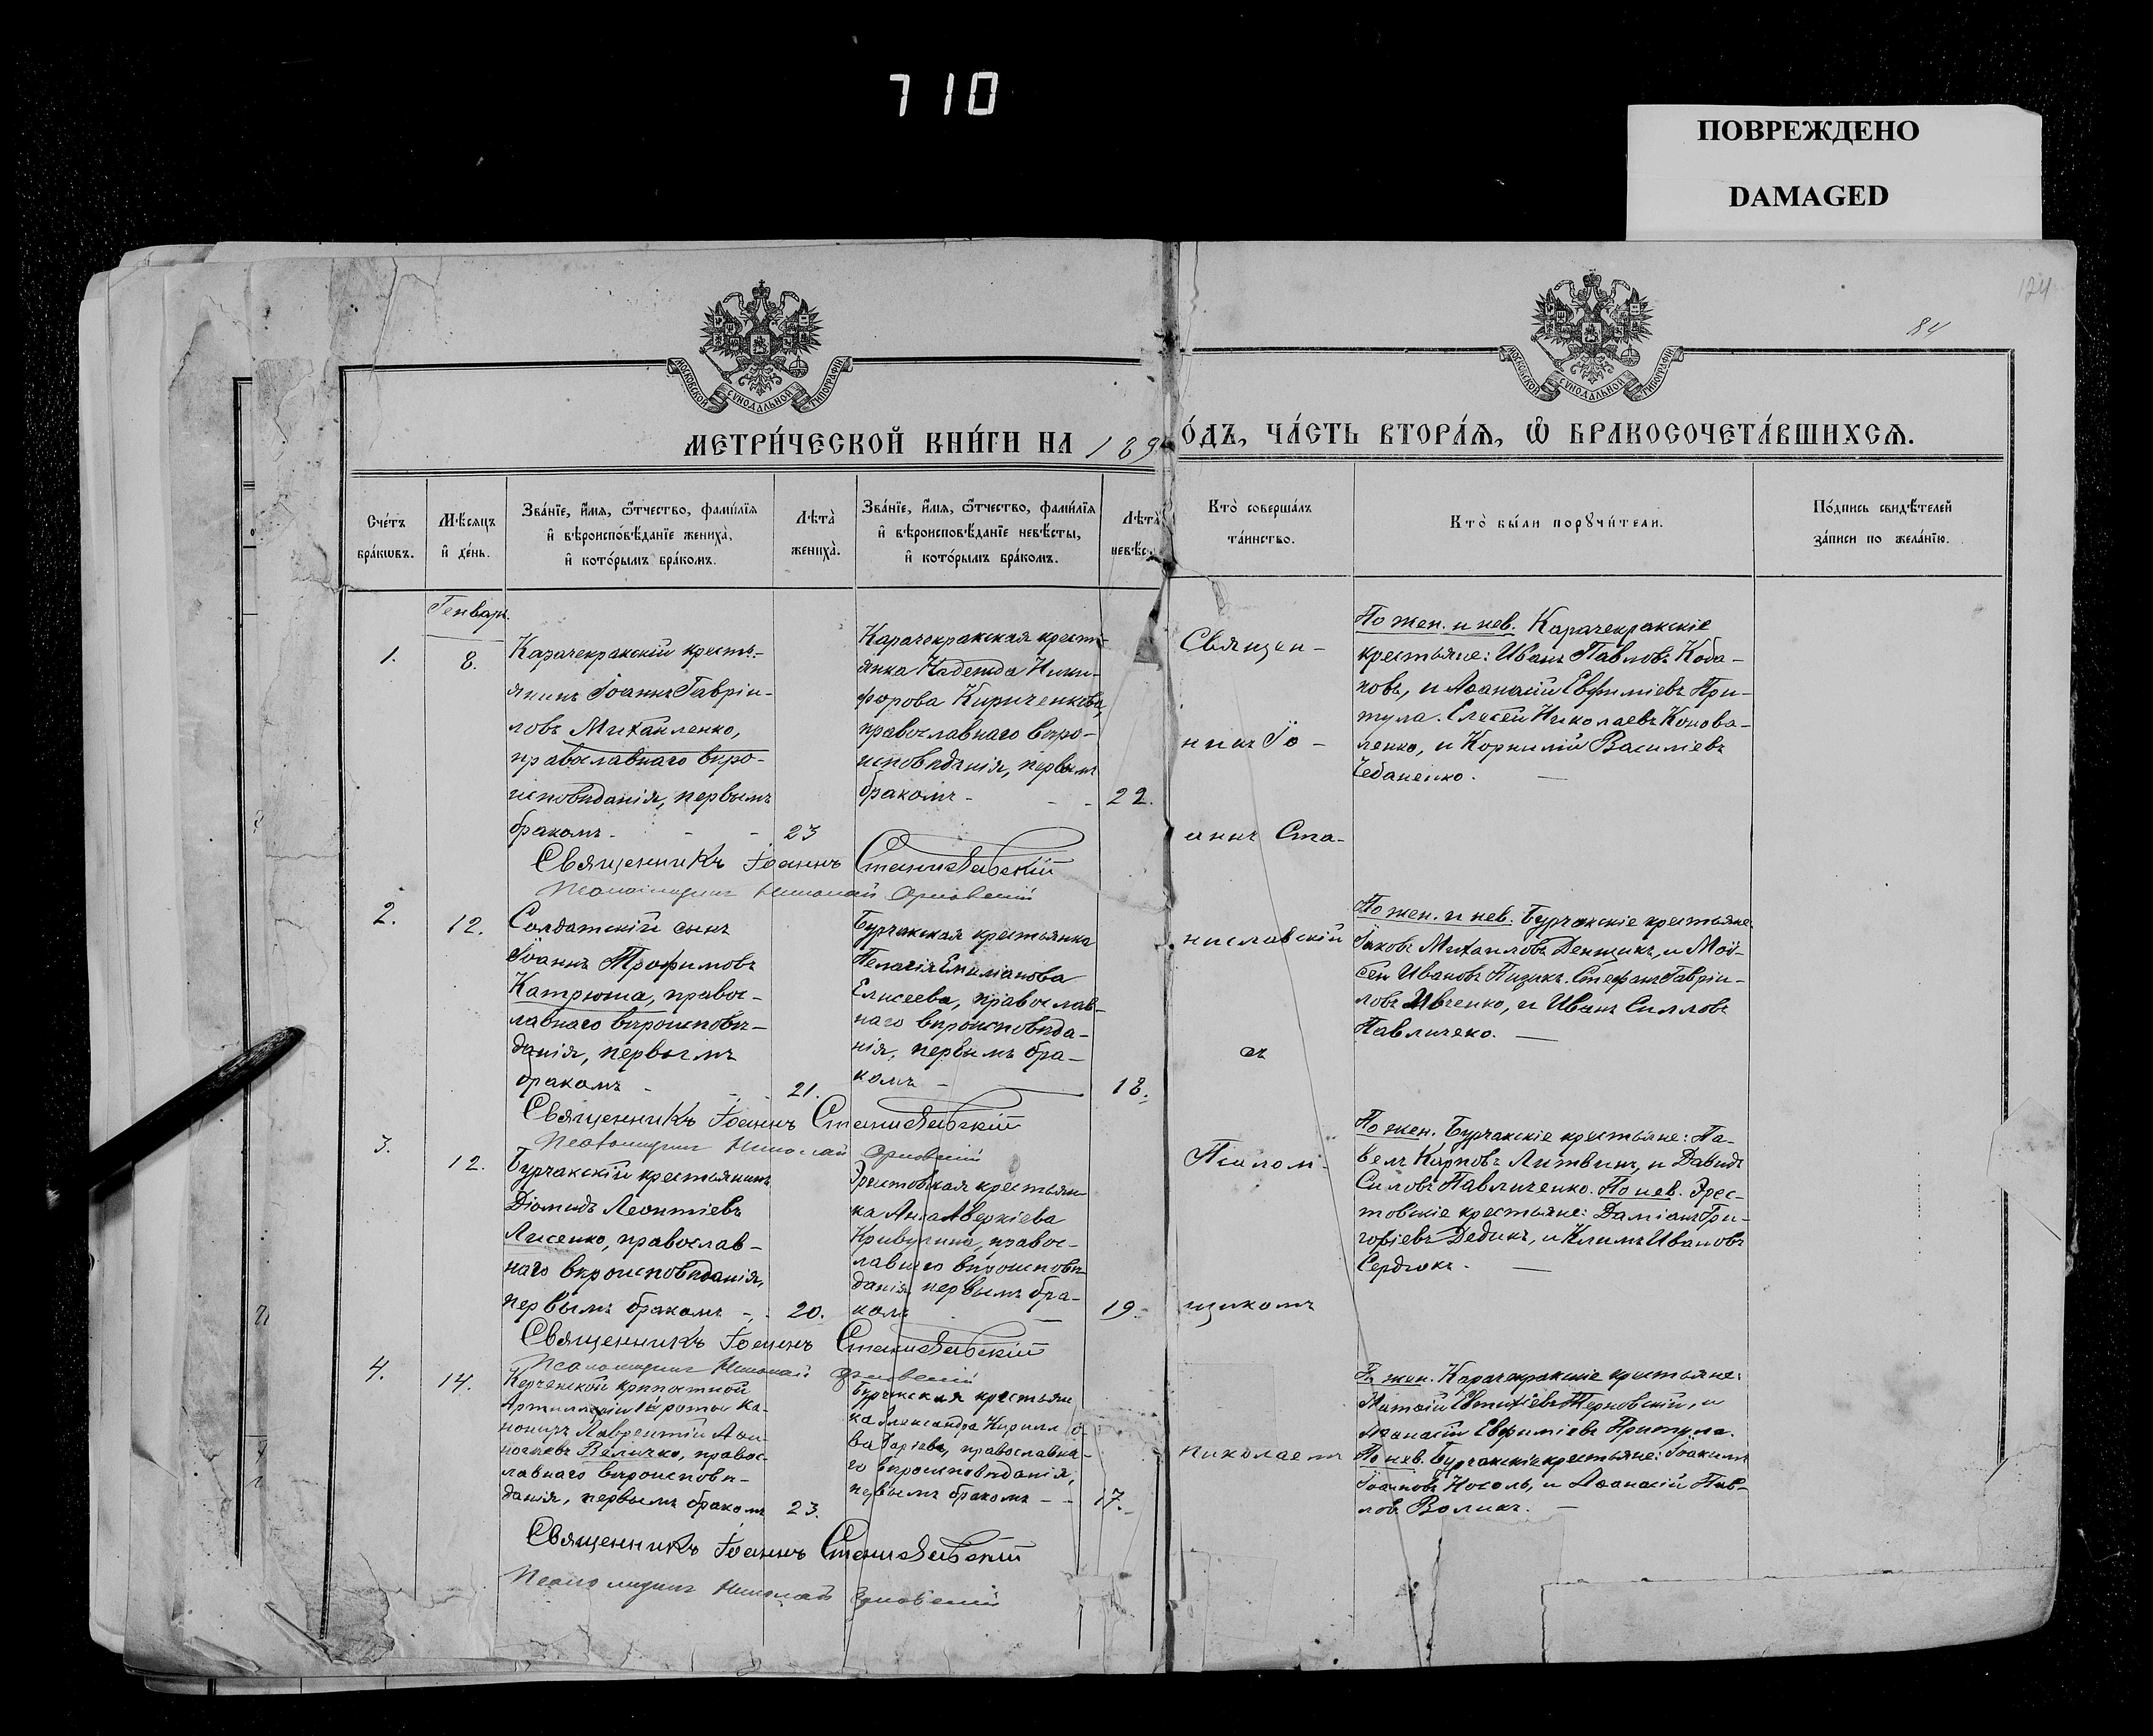 710
ПОВРЕЖДЕНО
DAMAGED
124
84
МОСКОВСКОЙ СУНОДАЛЬНОЙ ТИПОГРАФІИ
МОСКОВСКОЙ СУНОДАЛЬНОЙ ТИПОГРАФІИ
МЕТРИ́ЧЕСКОЙ КНИ́ГИ НА 189
О́ДЪ, ЧА́СТЬ ВТОРА́Ѧ, Ѿ БРАКОСОЧЕТА́ВШИХСѦ.
Сче́тъ
бра́кѡвъ.
Мѣ́сѧцъ
и҆ де́нь.
Зва́нїе, и҆́мѧ, ѻ҆́тчество, фами́лїѧ
и҆ вѣроисповѣ́данїе жениха̀,
и҆ кото́рымъ бра́комъ.
Лѣта̀
жениха̀.
Зва́нїе, и҆́мѧ, ѻ҆́тчество, фами́лїѧ
и҆ вѣроисповѣ́данїе невѣ́сты,
и҆ кото́рымъ бра́комъ.
Лѣта̀
невѣ́с
Кто̀ соверша́лъ
та́инство.
Кто̀ бы́ли порꙋчи́тели.
По́дпись свидѣ́телей
за́писи по жела́нїю.
Генварь.
1.
8.
Карачекракскій кресть-
янинъ Іоаннъ Гавріи-
ловъ Михайленко,
православнаго вѣро-
исповѣданія, первымъ
бракомъ. - -
23
Карачекракская кресть-
янка Надежда Ники-
форова Кириченкова,
православнаго вѣро-
исповѣданія, первымъ
бракомъ - - -
22.
Священ-
никъ Іо-
аннъ Ста-
ниславскій
съ
Псалом-
щикомъ
Николаемъ
По жен. и нев. Карачекракскіе
крестьяне: Иванъ Павловъ Коба-
ковъ, и Аѳанасій Евфиміевъ При-
тула. Елисей Николаевъ Конова-
ленко, и Корнилій Василіевъ
Чебаненко. —
Священникъ Іоаннъ Станиславскій
Псаломщикъ Николай Орловскій
2.
12.
Солдатскій сынъ
Іоаннъ Трофимовъ
Катрюша, правос-
лавнаго вѣроисповѣ-
данія, первымъ
бракомъ - - -
21.
Бурчакская крестьянка
Пелагія Емиліанова
Елисеева, православ-
наго вѣроисповѣда-
нія, первымъ бра-
комъ -
18.
По жен. и нев. Бурчакскіе крестьяне:
Іаковъ Михаиловъ Денщикъ, и Мои-
сей Ивановъ Пизикъ. Стефанъ Гавріи-
ловъ Ивченко, и Иванъ Силловъ
Павличеко. —
Священникъ Іоаннъ Станиславскій
Псаломщикъ Николай Орловскій
3.
12.
Бурчакскій крестьянинъ
Діомидъ Леонтіевъ
Лисенко, православ-
наго вѣроисповѣданія,
первымъ бракомъ - -
20.
Эрестовская крестьян-
ка Анна Аверкіева
правос-
лавнаго вѣроисповѣ-
данія, первымъ бра-
комъ —
19.
По жен. Бурчакскіе крестьяне: Па-
велъ Карповъ Литвинъ, и Давидъ
Силовъ Павличенко. По нев. Эрес-
товскіе крестьяне: Даміанъ Гри-
горіевъ Дедикъ, и Климъ Ивановъ
Сердюкъ. —
Священникъ Іоаннъ Станиславскій
Псаломщикъ Николай Орловскій
4.
14.
Керченской крѣпостной
Артиллеріи роты Ка-
нониръ Лаврентій
Величко, правос-
лавнаго вѣроисповѣ-
данія, первымъ бракомъ
23.
Бурчакская крестьян
ка Александра Кирилло-
ва православна-
го вѣроисповѣданія,
первымъ бракомъ - -
17.
По жен. Карачекракскіе крестьяне:
Евтихіевъ Терновскій, и
Аѳанасій Евфиміевъ Притула.
По нев. Бурчакскіе крестьяне: Іоакимъ
Іоанновъ Носоль, и Аѳанасій Пав-
ловъ Воликъ. —
Священникъ Іоаннъ Станиславскій
Псаломщикъ Николай Орловскій